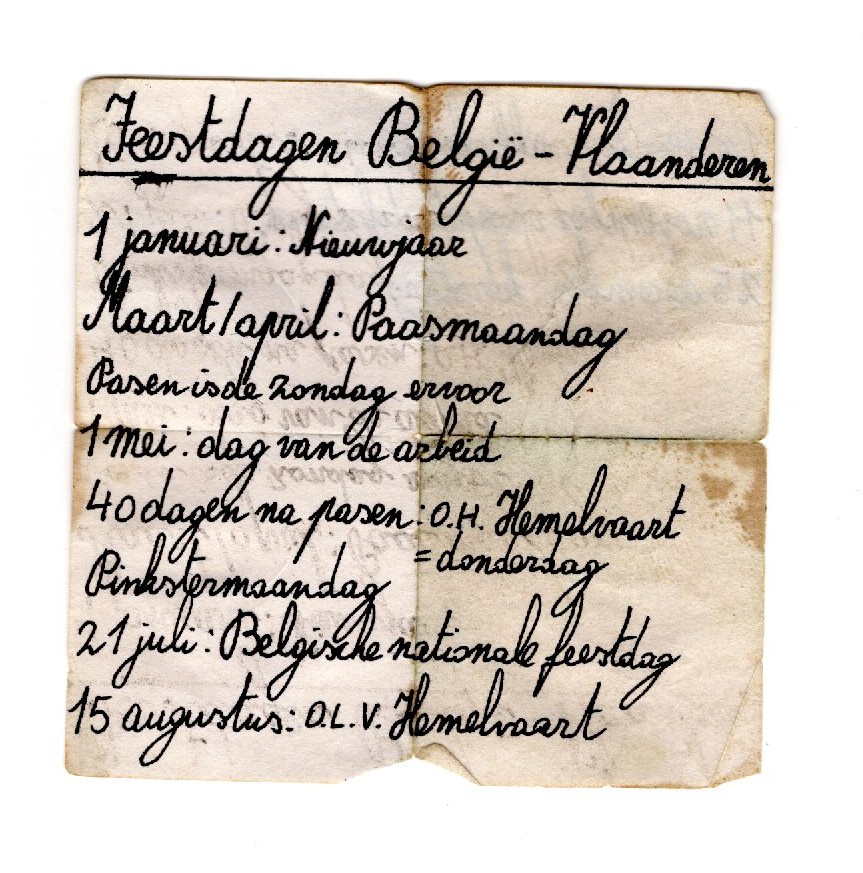 Feestdagen België - Vlaanderen
1 januari: Nieuwjaar
Maart/april: Paasmaandag
Pasen is de zondag ervoor
1 mei: dag van de arbeid
40 dagen na pasen: O.H. Hemelvaart
= donderdag
Pinkstermaandag
21 juli: Belgische nationale feestdag
15 augustus: O.L.V. Hemelvaart